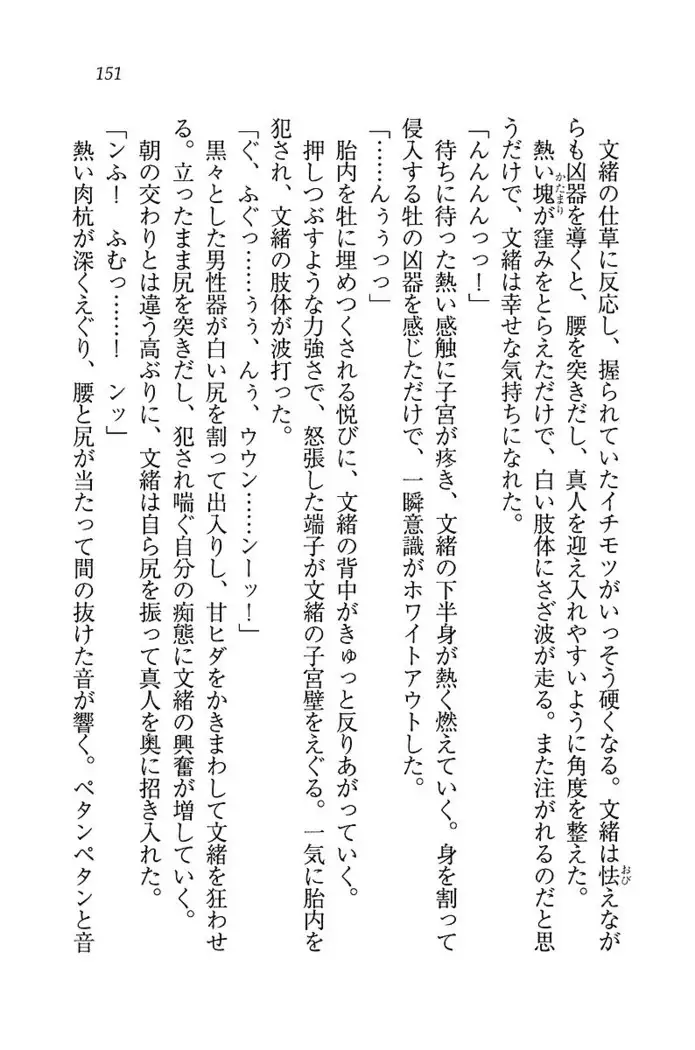 151
文緒の仕草に反応し、握られていたイチモツがいっそう硬くなる。文緒は怯えなが
おび
らも凶器を導くと、腰を突きだし、真人を迎え入れやすいように角度を整えた。
熱い塊が窪みをとらえただけで、白い肢体にさざ波が走る。また注がれるのだと思
かたまり
うだけで、文緒は幸せな気持ちになれた。
「んんんんっっ！」
待ちに待った熱い感触に子宮が疼き、文緒の下半身が熱く燃えていく。身を割って
侵入する牡の凶器を感じただけで、一瞬意識がホワイトアウトした。
「……んぅぅっっ」
胎内を牡に埋めつくされる悦びに、文緒の背中がきゅっと反りあがっていく。
押しつぶすような力強さで、怒張した端子が文緒の子宮壁をえぐる。一気に胎内を
犯され、文緒の肢体が波打った。
「ぐ、ふぐっ……うぅ、んぅ、ウウン……ンーッ！」
黒々とした男性器が白い尻を割って出入りし、甘ヒダをかきまわして文緒を狂わせ
る。立ったまま尻を突きだし、犯され喘ぐ自分の痴態に文緒の興奮が増していく。
朝の交わりとは違う高ぶりに、文緒は自ら尻を振って真人を奥に招き入れた。
「ンふ！　ふむっ……！　ンッ」
熱い肉杭が深くえぐり、腰と尻が当たって間の抜けた音が響く。ペタンペタンと音